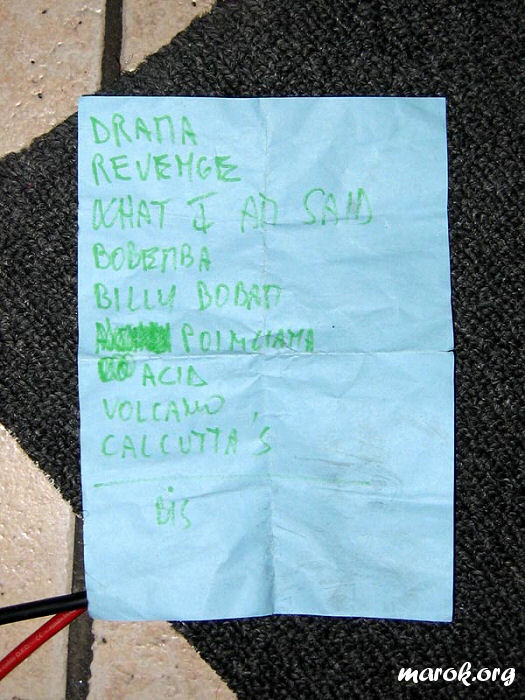 DRAMA
REVENGE
WHAT I AD SAID
BOBEMBA
BILLY BOBAM
POIMCIAMA
ACID
VOLCANO,
CALCUTTA'S
BIS
marok.org